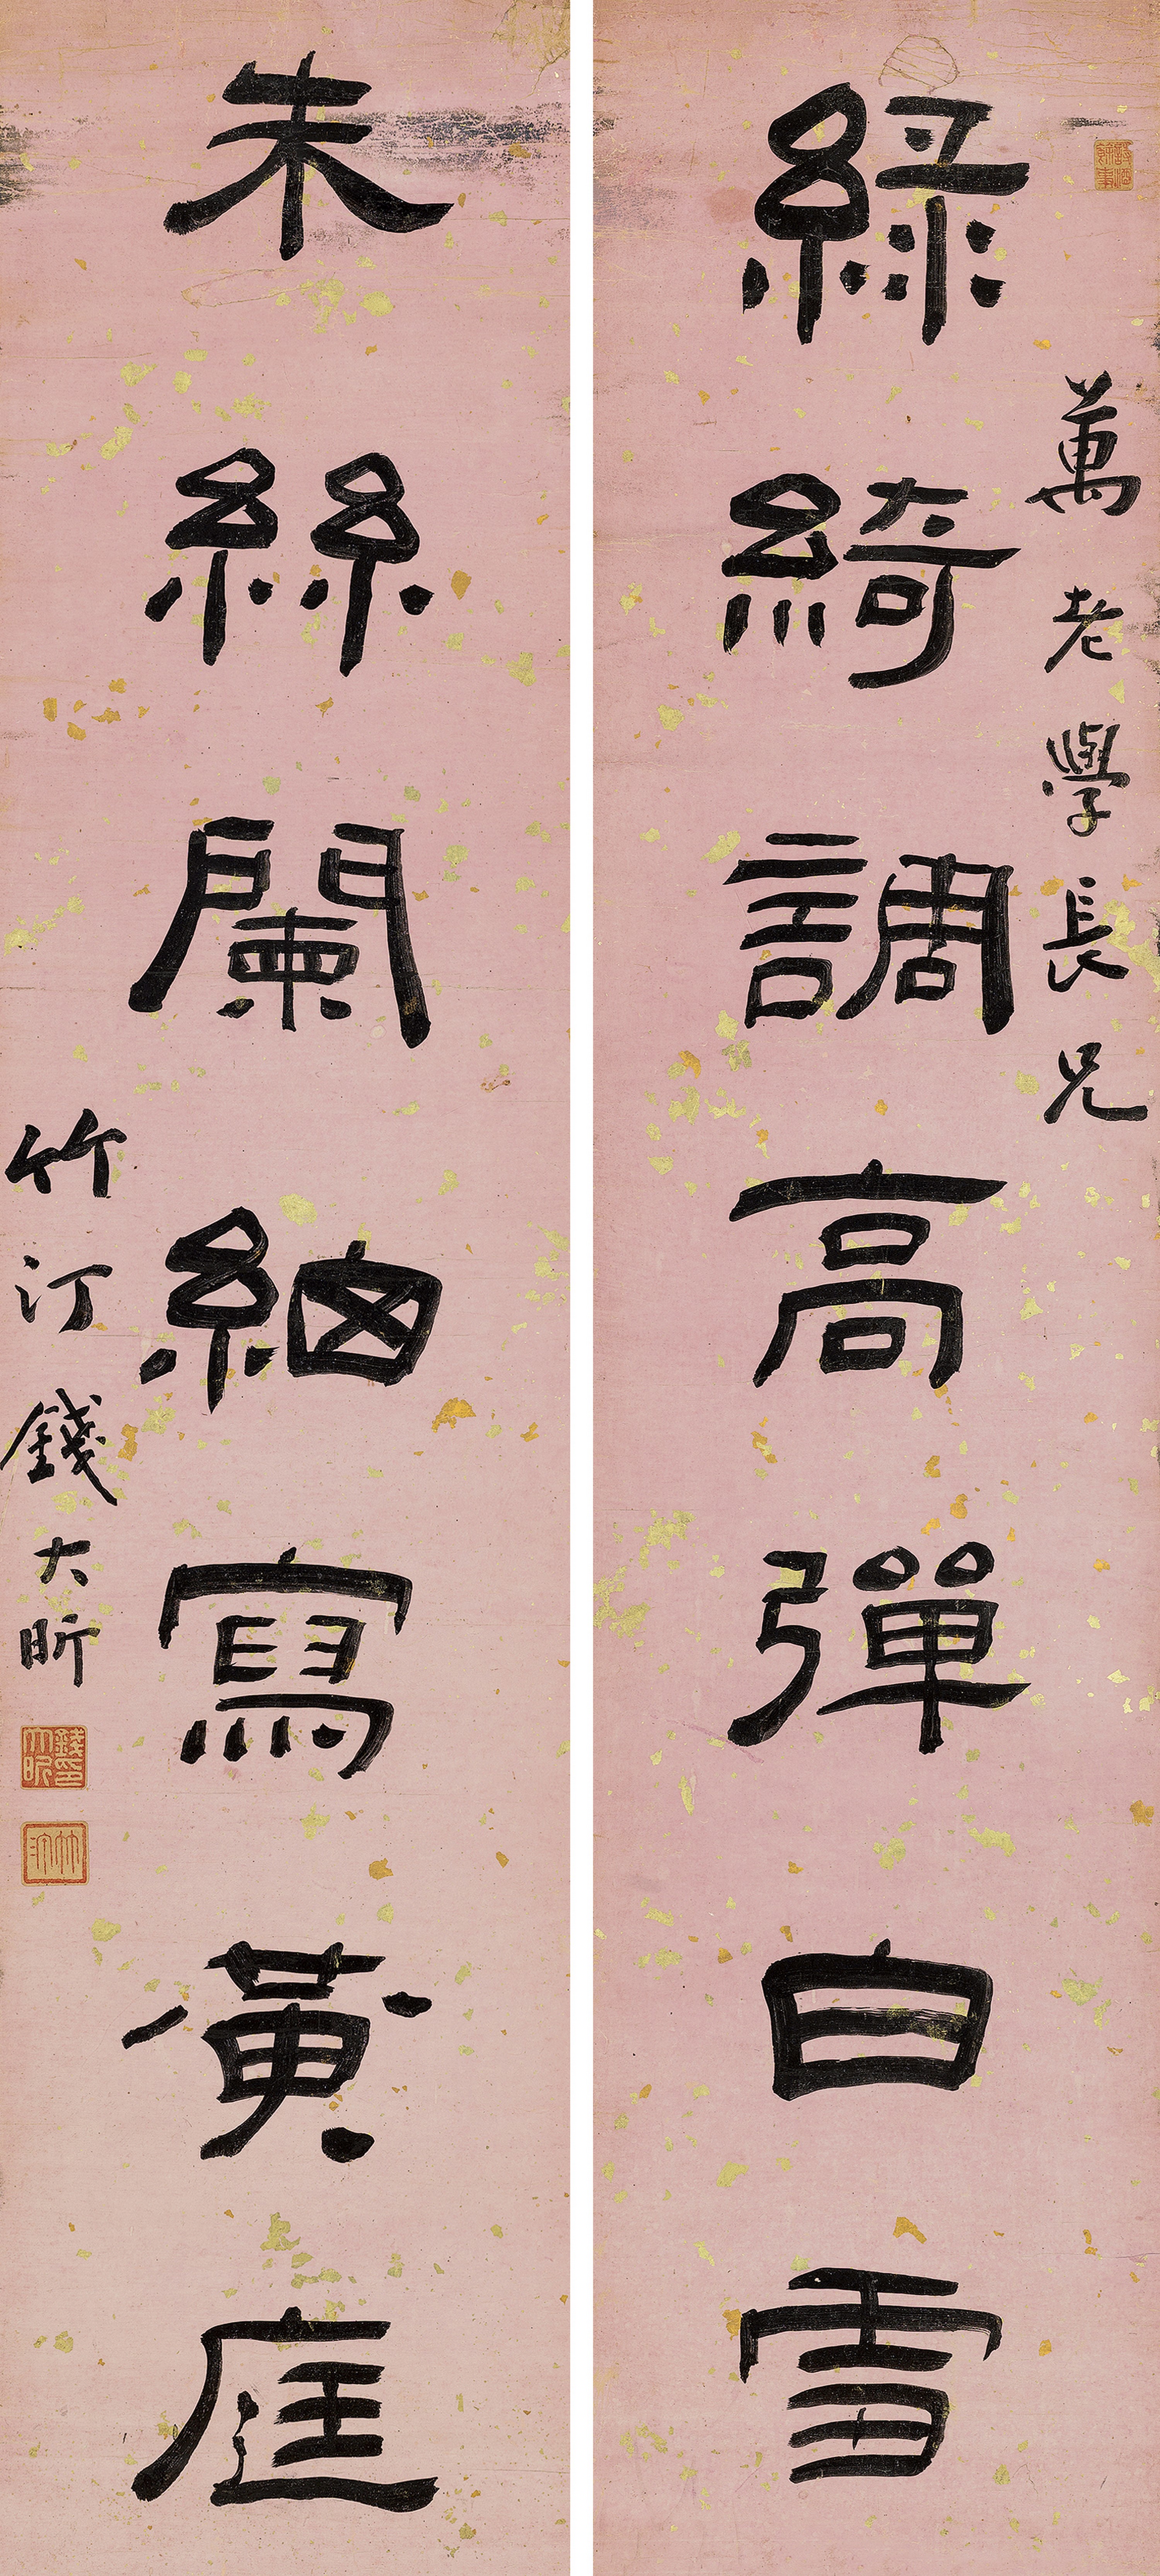 萬老學長兄
綠綺調高彈白雪
朱絲闌細寫黃庭
竹汀錢大昕
錢印大昕
竹汀